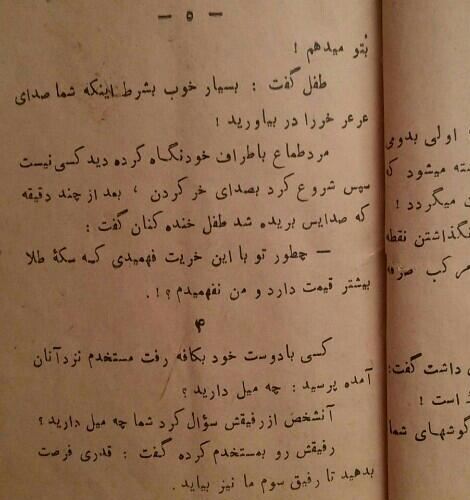 - ۵ -
بُتو میدهم !
طفل گفت : بسیار خوب بشرط اینکه شما صدای
عرعر خررا در بیاورید !
مردطماع باطراف خودنگاه کرده دید کسی نیست
سپس شروع کرد بصدای خر کردن ، بعد از چند دقیقه
که صدایس بریده شد طفل خنده کنان گفت :
– چطور تو با این خریت فهمیدی که سکهٔ طلا
بیشتر قیمت دارد و من نفهمیدم ؟!.
۴
کسی بادوست خود بکافه رفت مستخدم نزدآنان
آمده پرسید : چه میل دارید ؟
آنشخص ازرفیقش سؤال کرد شما چه میل دارید ؟
رفیقش رو بمستخدم کرده گفت : قدری فرصت
بدهید تا رفیق سوم ما نیز بیاید .
اولی بدومی
میشود که
میگردد !
نگذاشتن نقطه
مرکب صرفه
داشت گفت:
است !
گوشهای شما